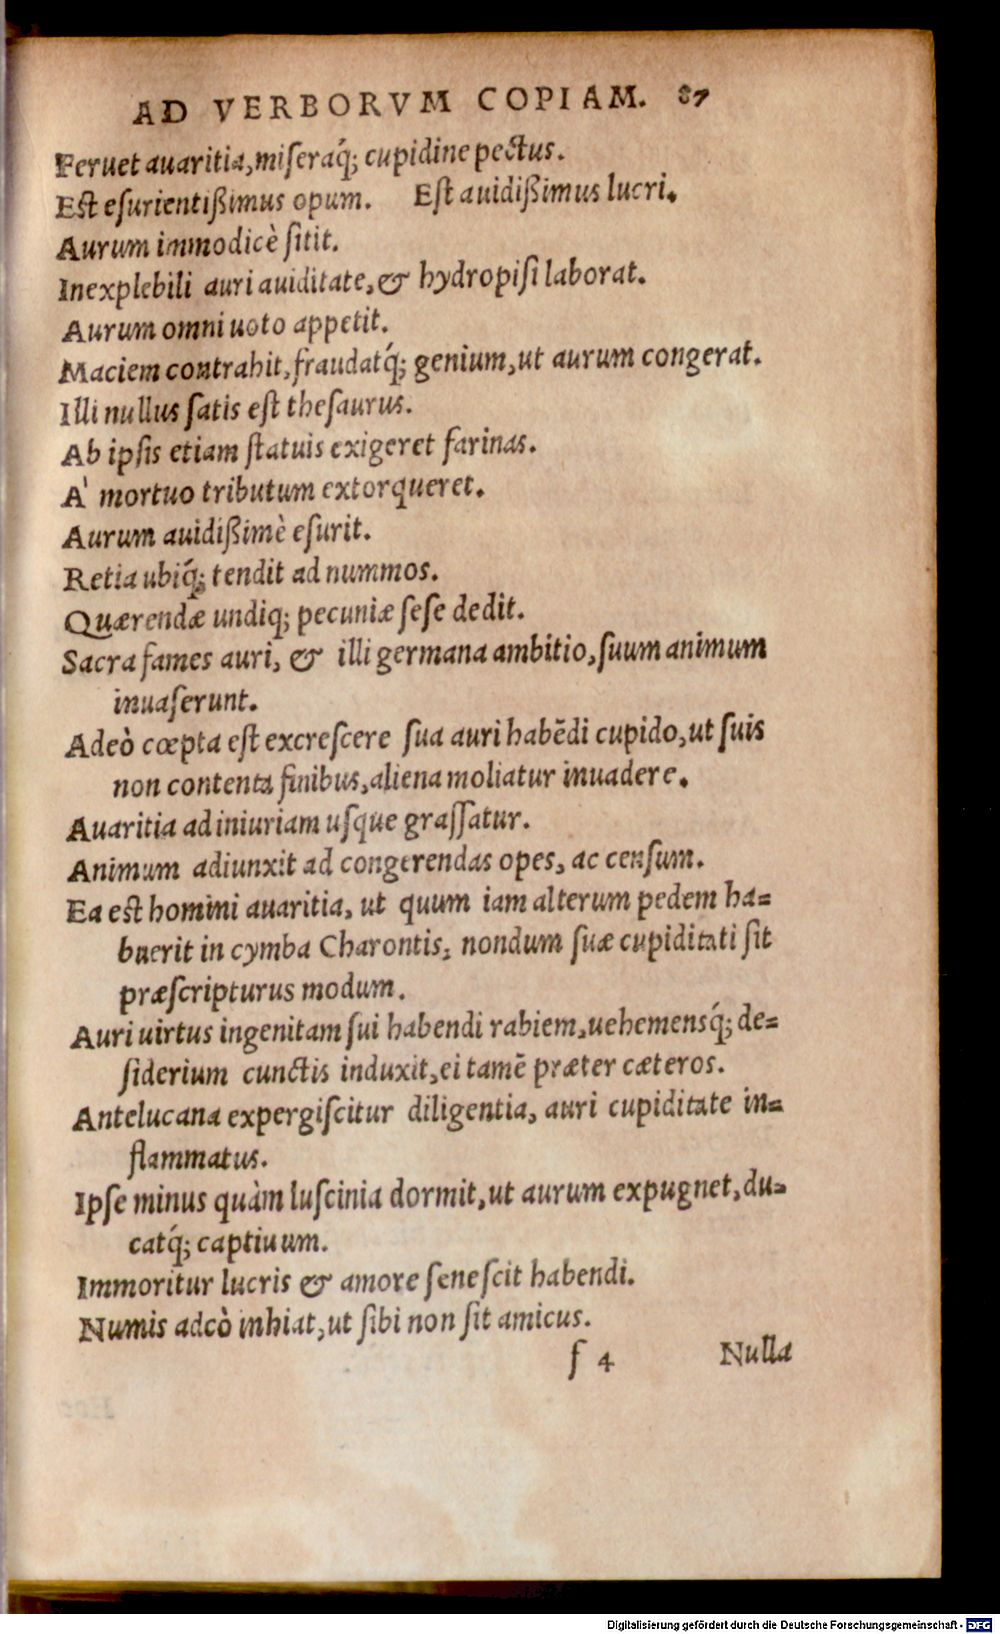 AD VERBORVM COPIAM. 87
Feruet auaritia, miseraq́; cupidine pectus.
Est esurientißimus opum. Est auidißimus lucri.
Aurum immodicè sitit.
Inexplebili auri auiditate, & hydropisi laborat.
Aurum omni uoto appetit.
Maciem contrahit, fraudatq́; genium, ut aurum congerat.
Illi nullus satis est thesaurus.
Ab ipsis etiam statuis exigeret farinas.
A' mortuo tributum extorqueret.
Aurum auidißimè esurit.
Retia ubiq́; tendit ad nummos.
Quærendæ undiq; pecuniæ sese dedit.
Sacra fames auri, & illi germana ambitio, suum animum
inuaserunt.
Adeò cœpta est excrescere sua auri habēdi cupido, ut suis
non contenta finibus, aliena moliatur inuadere.
Auaritia ad iniuriam usque grassatur.
Animum adiunxit ad congerendas opes, ac censum.
Ea est homini auaritia, ut quum iam alterum pedem ha-
buerit in cymba Charontis, nondum suæ cupiditati sit
præscripturus modum.
Auri uirtus ingenitam sui habendi rabiem, uehemensq́; de-
siderium cunctis induxit, ei tamē præter cæteros.
Antelucana expergiscitur diligentia, auri cupiditate in-
flammatus.
Ipse minus quàm luscinia dormit, ut aurum expugnet, du-
catq́; captiuum.
Immoritur lucris & amore senescit habendi.
Numis adeò inhiat, ut sibi non sit amicus.
f 4 Nulla
Digitalisierung gefördert durch die Deutsche Forschungsgemeinschaft - DFG